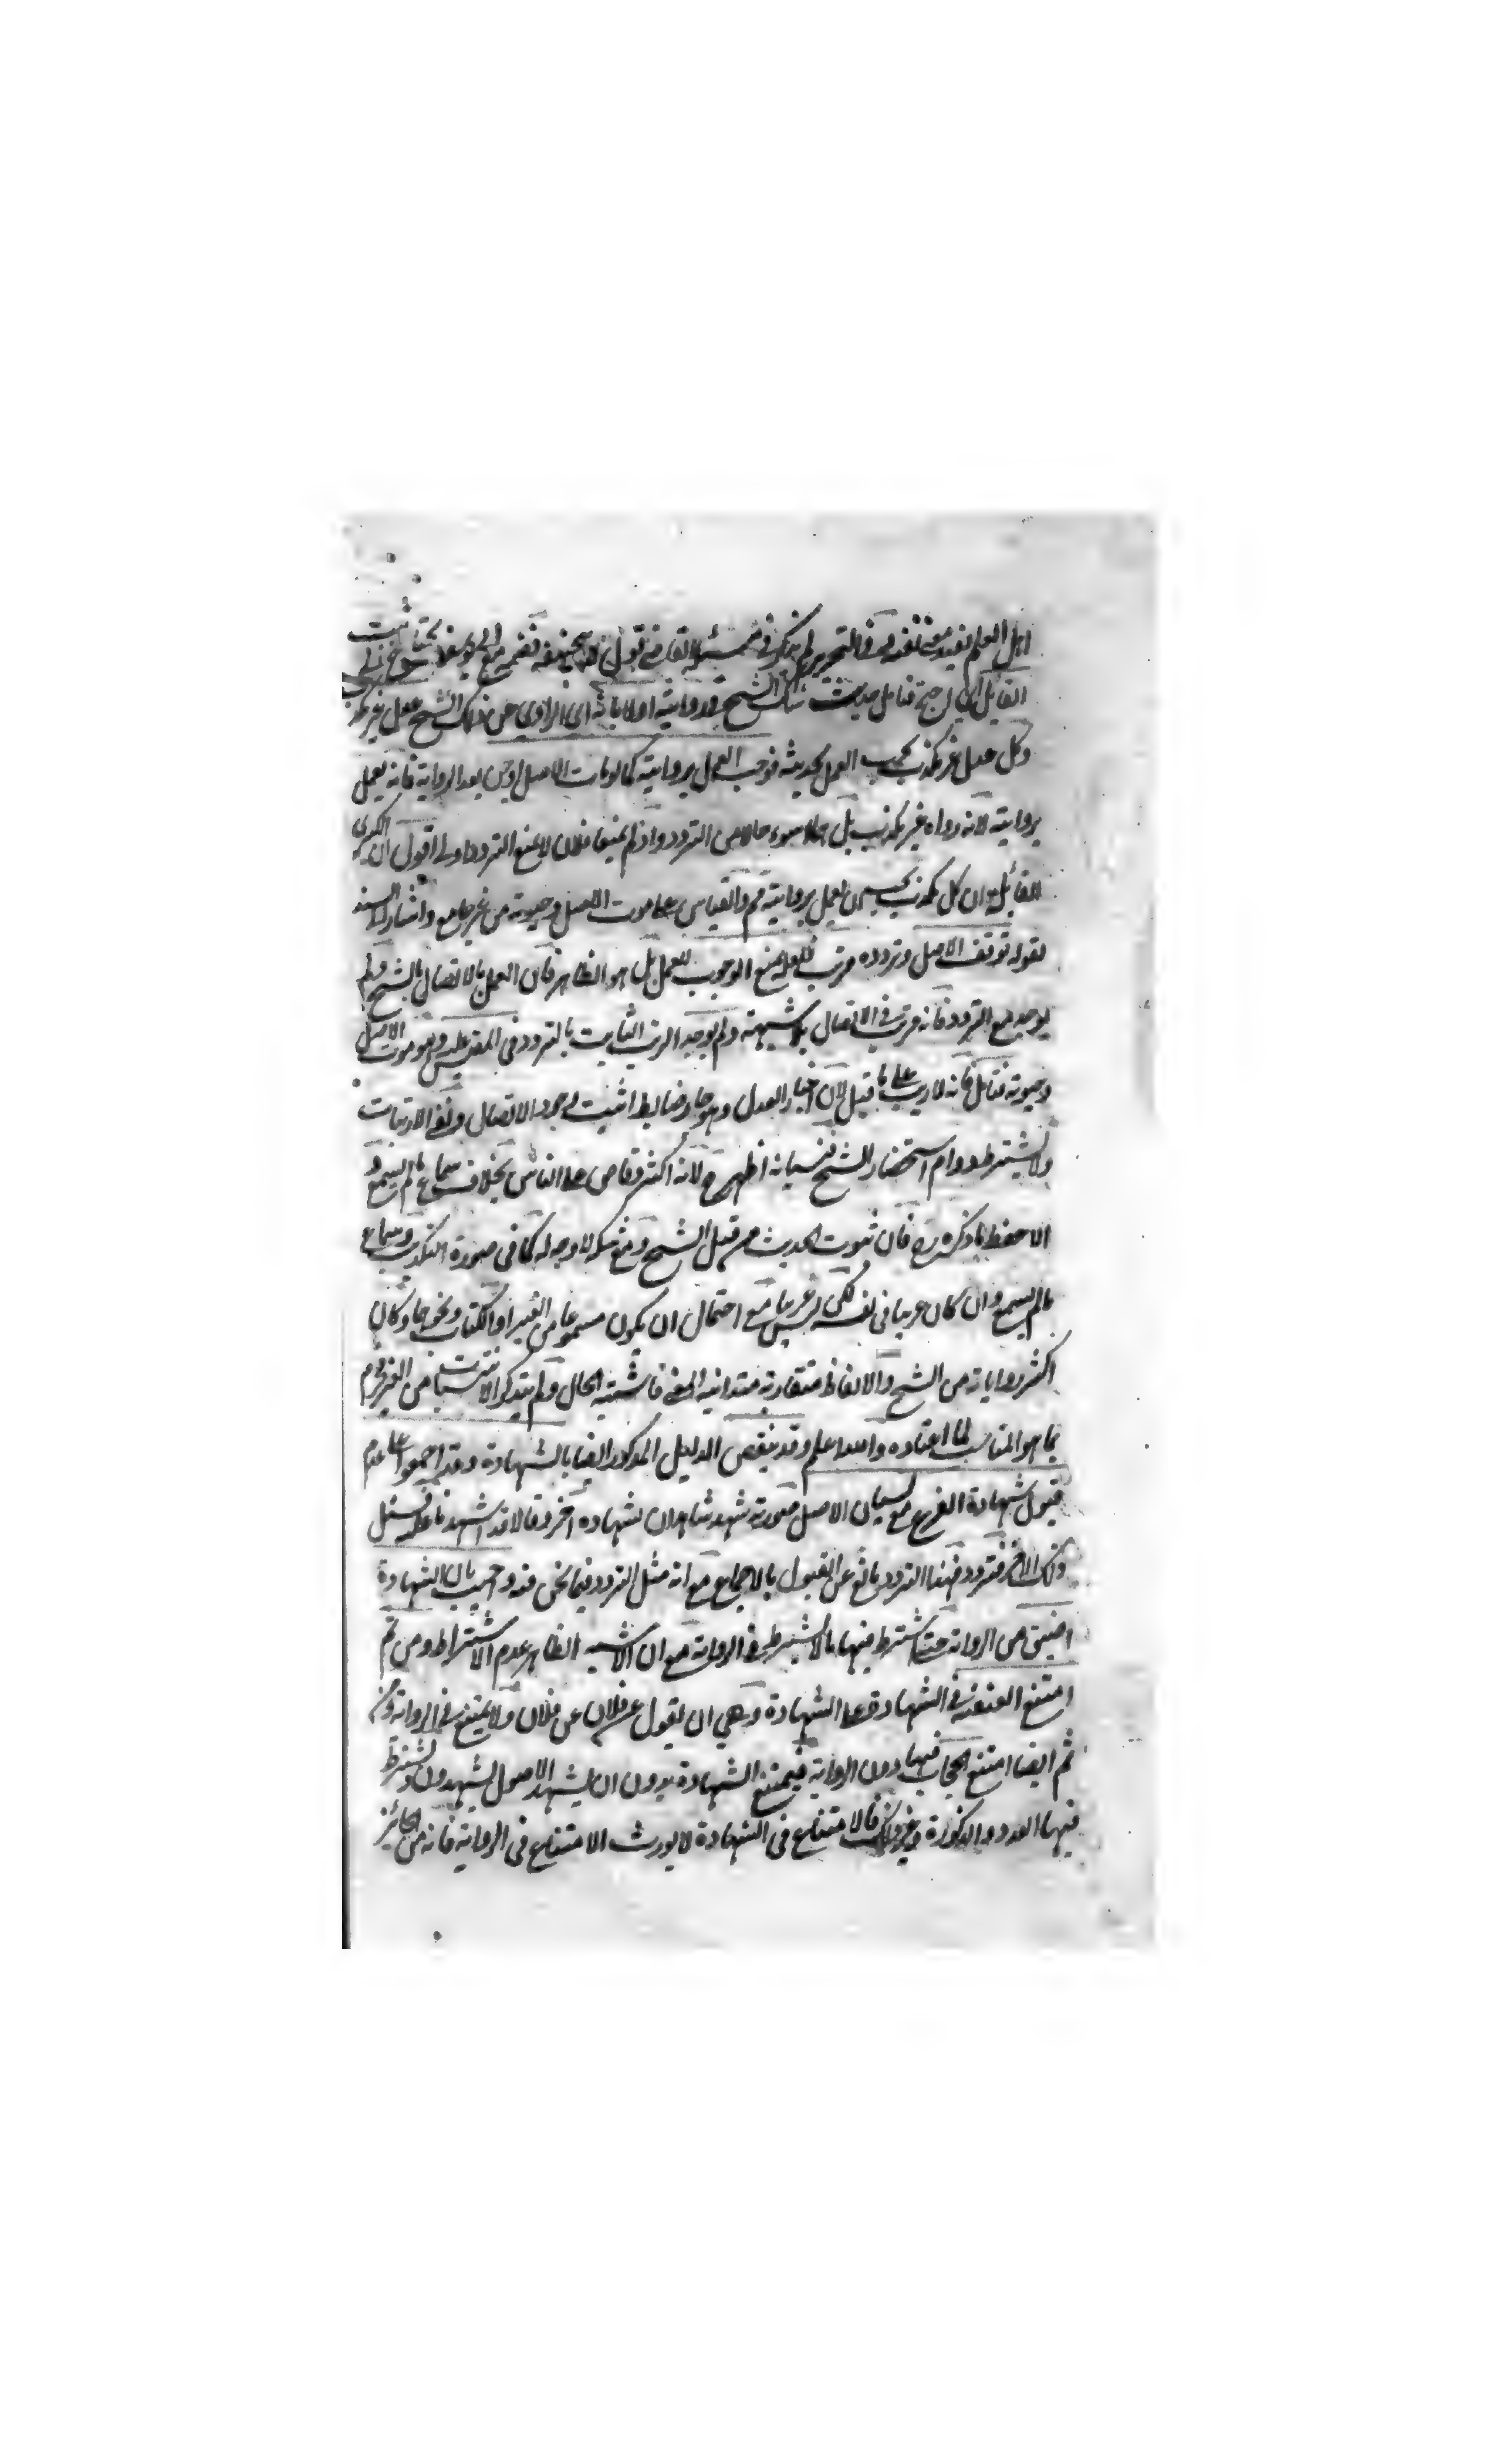 اهل العلم في التحرير لم يذكر في مسئلة القاضي قول ابي حنيفة فضمه مع ابي يوسف يحتاج ثبت
القائل الى ترجيح فتامل حديث شك الشيخ وروايته اولا بانه اى الراوي عن ذلك الشيخ عدل غير مكذب
وكل عدل غير مكذب يجب العمل بحديثه فوجب العمل بروايته كما لو مات الاصل او جن بعد الرواية فانه يعمل
بروايته لانه رواه غير مكذب بل هما اسوء حالا من التردد واذ لم يمنعا فلان لا يمنع التردد اولى اقول ان الكبرى
القائل بان كل مكذب يجب العمل بروايته مم والقياس على موت الاصل وجنونه من غير جامع واشار الى السند
بقوله توقف الاصل وتردده مريب فلعله يمنع الوجوب للعمل بل هو الظاهر فان العمل بالاتصال بالشيخ ولم
يوجد مع التردد فانه مريب في الاتصال بلا شبهة ولم يوجد الريب الثابت بالتردد في المقيس عليه وهو موت الاصل
وجنونه فتامل فانه لا ريب على ما قيل لان اخبار العدل وهو جازم ضابط اثبت وجود الاتصال ونفى الارتياب
ولا يشترط دوام استحضار الشيخ فنسيانه اظهر ح لانه اكثر وقاص على الناس بخلاف سماع ما لم يسمع و
الا حفظ ما ذكره رح فان ثبوت الحديث من قبل الشيخ ومنع شكه لا وجه له كما في صورة التكذيب وسماع
ما لم يسمع وان كان غريبا في نفسه لكن ليس غريبا مع احتمال ان يكون مسموعا من الغير او الكتاب ونحوهما وكان
اكثر رواياته من الشيخ والالفاظ متقاربة متدانية المعنى فاشتبه الحال ولم يتذكر الانتساب من الغير فجزم
بما هو المناسب لما اعتاده والله اعلم وقد ينقض الدليل المذكور ايضا بالشهادة وقد اجمعوا على عدم
قبول شهادة الفرع مع نسيان الاصل صورته شهد شاهدان بشهادة آخر وقالا قد اشهدنا عليه فسئل
ذلك الآخر فتردد فهذا التردد مانع عن القبول بالاجماع مع انه مثل التردد فيما نحن فيه واجيب بان الشهادة
اضيق من الرواية حتى اشترط فيها ما لا يشترط في الرواية مع ان الاشبه الظاهر عدم الاشتراط ومن ثم
امتنع العنعنة في الشهادة على الشهادة وهي ان يقول عن فلان عن فلان ولا يمتنع في الرواية ومن
ثم ايضا امتنع الحجاب فيها دون الرواية فيمتنع الشهادة بدون ان يشهد الاصول يشهدون ويشترط
فيها العدد والذكورة وغير ذلك فالامتناع في الشهادة لا يورث الامتناع في الرواية فانه من الجائز